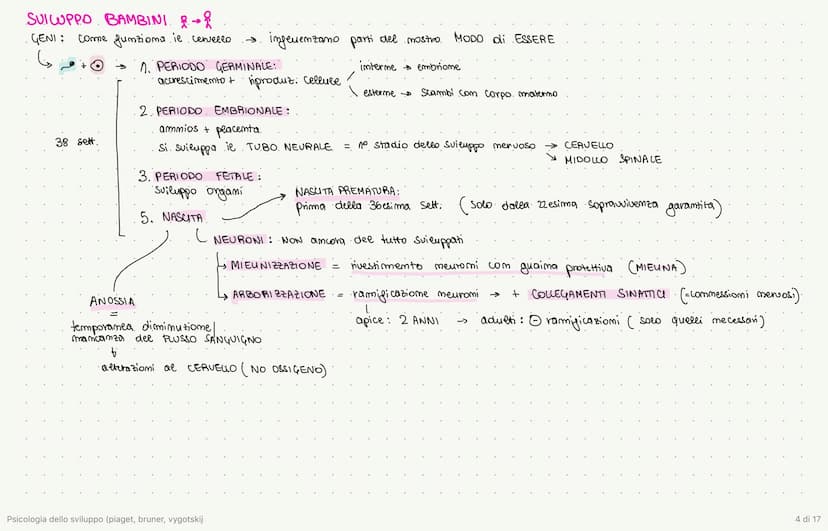 SVILUPPO BAMBINI →
GENI: come funziona il cervello → influenzano parti del nostro MODO di ESSERE
+ → 1. PERIODO GERMINALE: interne → embrione
accrescimento + riproduz. cellule
esterne → scambi con corpo materno
2. PERIODO EMBRIONALE:
amnios + placenta
38 sett. si sviluppa il TUBO NEURALE = 1° stadio dello sviluppo nervoso → CERVELLO
↘ MIDOLLO SPINALE
3. PERIODO FETALE:
sviluppo organi → NASCITA PREMATURA:
prima della 36esima sett. (solo dalla 22esima sopravvivenza garantita)
5. NASCITA
NEURONI: NON ancora del tutto sviluppati
↳ MIELINIZZAZIONE = rivestimento neuroni con guaina protettiva (MIELINA)
↳ ARBORIZZAZIONE = ramificazione neuroni → + COLLEGAMENTI SINATTICI (=connessioni nervosi)
apice: 2 ANNI → adulti: ⊖ ramificazioni (solo quelli necessari)
ANOSSIA
=
temporanea diminuzione/
mancanza del FLUSSO SANGUIGNO
↓
alterazioni al CERVELLO (NO OSSIGENO)
Psicologia dello sviluppo (piaget, bruner, vygotskij
4 di 17